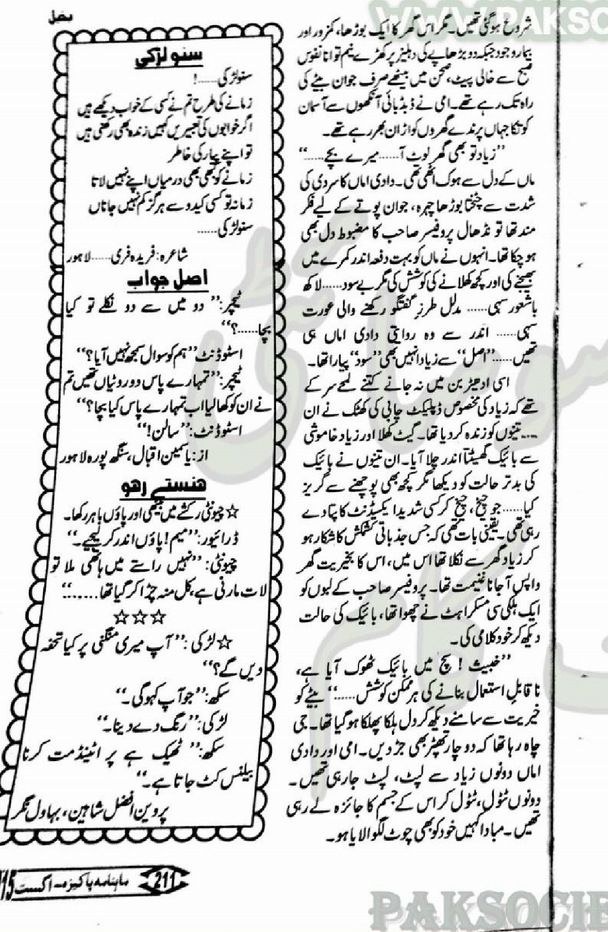 WWW.PAKSOC
شروع ہو گئی تھیں۔ مگر اس گھر کا ایک بوڑھا، کمزور اور
بیمار وجود جبکہ دو بڑھاپے کی دہلیز پر کھڑے نیم توانا نفوس
صبح سے خالی پیٹ، صحن میں بیٹھے صرف جوان بیٹے کی
راہ تک رہے تھے۔ امی نے ڈبڈبائی آنکھوں سے آسمان
کو تکا جہاں پرندے گھروں کو اڑان بھر رہے تھے۔
”زیاد تو بھی گھر لوٹ آ...... میرے بچے......“
ماں کے دل سے ہوک اٹھی تھی۔ دادی اماں کا سردی کی
شدت سے چٹختا بوڑھا چہرہ، جوان پوتے کے لیے فکر
مند تھا تو نڈھال پروفیسر صاحب کا مضبوط دل بھی
ہو چکا تھا۔ انہوں نے ماں کو بہت دفعہ اندر کمرے میں
بھیجنے کی اور کچھ کھلانے کی کوشش کی مگر بے سود...... لاکھ
باشعور سہی...... مدلل طرزِ گفتگو رکھنے والی عورت
سہی...... اندر سے وہ روایتی دادی اماں ہی
تھیں......”اصل“ سے زیادہ انہیں بھی ”سود“ پیارا تھا۔
اسی ادھیڑ بن میں نہ جانے کتنے لمحے سرکے
تھے کہ زیاد کی مخصوص ڈپلیکیٹ چابی کی کھٹک نے ان
تینوں کو زندہ کر دیا تھا۔ گیٹ کھلا اور زیاد خاموشی
سے بائیک گھسیٹتا اندر چلا آیا۔ ان تینوں نے بائیک
کی بدتر حالت کو دیکھا مگر کچھ بھی پوچھنے سے گریز
کیا...... جو چیخ، چیخ کر کسی شدید ایکسیڈنٹ کا پتا دے
رہی تھی۔ یقینی بات تھی کہ جس جذباتی کشمکش کا شکار ہو
کر زیاد گھر سے نکلا تھا اس میں، اس کا بخیریت گھر
واپس آ جانا غنیمت تھا۔ پروفیسر صاحب کے لبوں کو
ایک ہلکی سی مسکراہٹ نے چھوا تھا، بائیک کی حالت
دیکھ کر خود کلامی کی۔
”خبیث! سچ میں بائیک ٹھوک آیا ہے،
ناقابلِ استعمال بنانے کی ہر ممکن کوشش......“ بیٹے کو
خیریت سے سامنے دیکھ کر دل ہلکا پھلکا ہو گیا تھا۔ جی
چاہ رہا تھا کہ دو چار تھپڑ بھی جڑ دیں۔ امی اور دادی
اماں دونوں زیاد سے لپٹ، لپٹ جا رہی تھیں۔
دونوں ٹٹول، ٹٹول کر اس کے جسم کا جائزہ لے رہی
تھیں۔ مبادا کہیں خود کو بھی چوٹ لگوا لایا ہو۔
سنو لڑکی
سنو لڑکی......!
زمانے کی طرح تم نے کسی کے خواب دیکھے ہیں
اگر خوابوں کی تعبیریں کہیں زندہ بھی رکھنی ہیں
تو اپنے پیار کی خاطر
زمانے کو کبھی بھی درمیاں اپنے نہیں لانا
زمانہ تو کسی کیدو سے ہرگز کم نہیں جاناں
سنو لڑکی......
شاعرہ: فریدہ فری...... لاہور
اصل جواب
ٹیچر: ”دو میں سے دو نکلے تو کیا
بچا......؟“
اسٹوڈنٹ ”ہم کو سوال سمجھ نہیں آیا؟“
ٹیچر: ”تمہارے پاس دو روٹیاں تھیں تم
نے ان کو کھا لیا اب تمہارے پاس کیا بچا؟“
اسٹوڈنٹ: ”سالن!“
از: یاسمین اقبال، سنگھ پورہ لاہور
ہنستے رہو
☆ چیونٹی رکشے میں بیٹھی اور پاؤں باہر رکھا۔
ڈرائیور: ”میم! پاؤں اندر کر لیجیے۔“
چیونٹی: ”نہیں راستے میں ہاتھی ملا تو
لات مارنی ہے، کل منہ چڑا کر گیا تھا......“
☆☆☆
☆ لڑکی: ”آپ میری منگنی پر کیا تحفہ
دیں گے؟“
سکھ: ”جو آپ کہو گی۔“
لڑکی: ”رنگ دے دینا۔“
سکھ: ”ٹھیک ہے پر اٹینڈ مت کرنا
بیلنس کٹ جاتا ہے۔“
پروین افضل شاہین، بہاول نگر
211 ماہنامہ پاکیزہ۔ اگست 15
PAKSOCIE